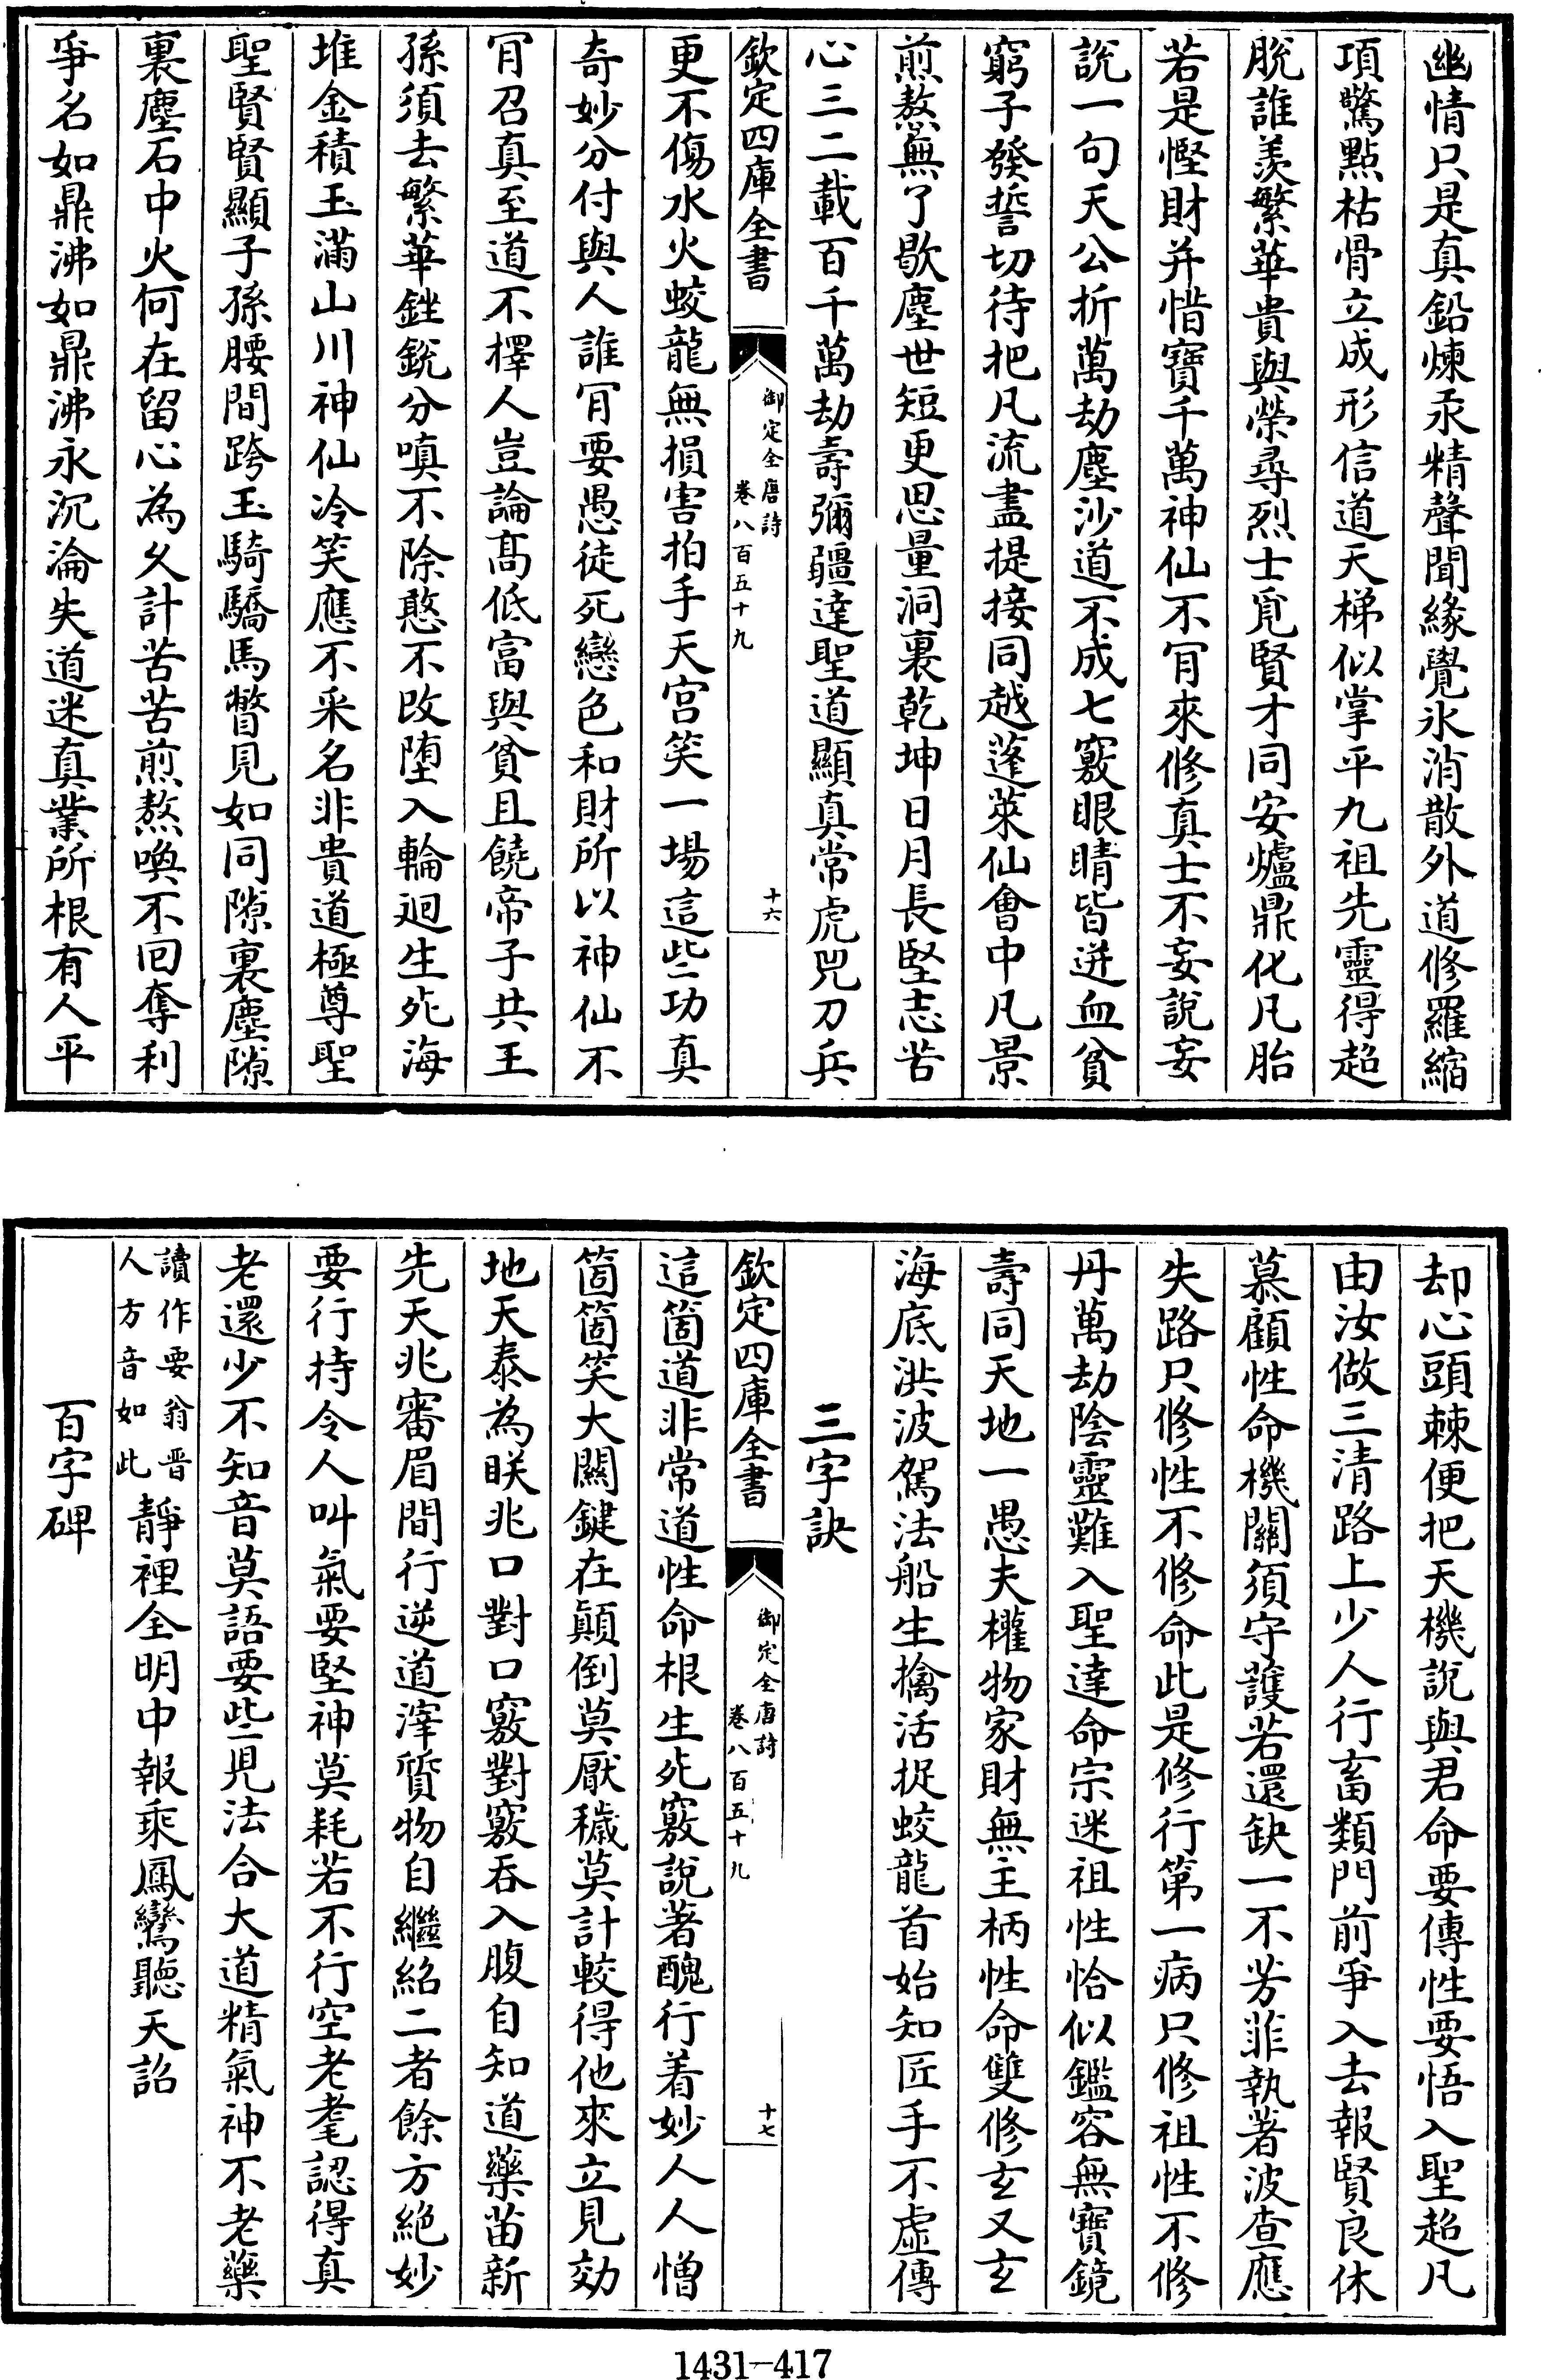 幽情只是真鉛煉汞精聲聞緣覺氷消散外道修羅縮
項驚點枯骨立成形信道天梯似掌平九祖先靈得超
脫誰羨繁華貴與榮尋烈士覓賢才同安爐鼎化凡胎
若是慳財并惜寶千萬神仙不肎來修真士不妄說妄
說一句天公折萬劫塵沙道不成七竅眼睛皆迸血貧
窮子發誓切待把凡流盡提接同越蓬萊仙會中凡景
煎熬無了歇塵世短更思量洞裏乾坤日月長堅志苦
心三二載百千萬劫壽彌疆達聖道顯真常虎兕刀兵
欽定四庫全書
御定全唐詩
卷八百五十九
十六
更不傷水火蛟龍無損害拍手天宫笑一場這些功真
奇妙分付與人誰肎要愚徒死戀色和財所以神仙不
肎召真至道不擇人豈論髙低富與貧且饒帝子共王
孫須去繁華銼銳分嗔不除憨不改墮入輪迴生死海
堆金積玉滿山川神仙冷笑應不采名非貴道極尊聖
聖賢賢顯子孫腰間跨玉騎驕馬瞥見如同隙裏塵隙
裏塵石中火何在留心為久計苦苦煎熬喚不回奪利
爭名如鼎沸如鼎沸永沉淪失道迷真業所根有人平
却心頭棘便把天機說與君命要傳性要悟入聖超凡
由汝做三清路上少人行畜類門前爭入去報賢良休
慕顧性命機關須守護若還缺一不芳菲執著波查應
失路只修性不修命此是修行第一病只修祖性不修
丹萬劫陰靈難入聖達命宗迷祖性恰似鑑容無寶鏡
壽同天地一愚夫權物家財無主柄性命雙修玄又玄
海底洪波駕法船生擒活捉蛟龍首始知匠手不虛傳
三字訣
欽定四庫全書
御定全唐詩
卷八百五十九
十七
這箇道非常道性命根生死竅說著醜行着妙人人憎
箇箇笑大關鍵在顛倒莫厭穢莫計較得他來立見効
地天泰為朕兆口對口竅對竅吞入腹自知道藥苗新
先天兆審眉間行逆道滓質物自繼紹二者餘方絶妙
要行持令人叫氣要堅神莫耗若不行空老耄認得真
老還少不知音莫語要些兒法合大道精氣神不老藥
讀作要翁晋
人方音如此
靜裡全明中報乘鳳鸞聽天詔
百字碑
1431—417